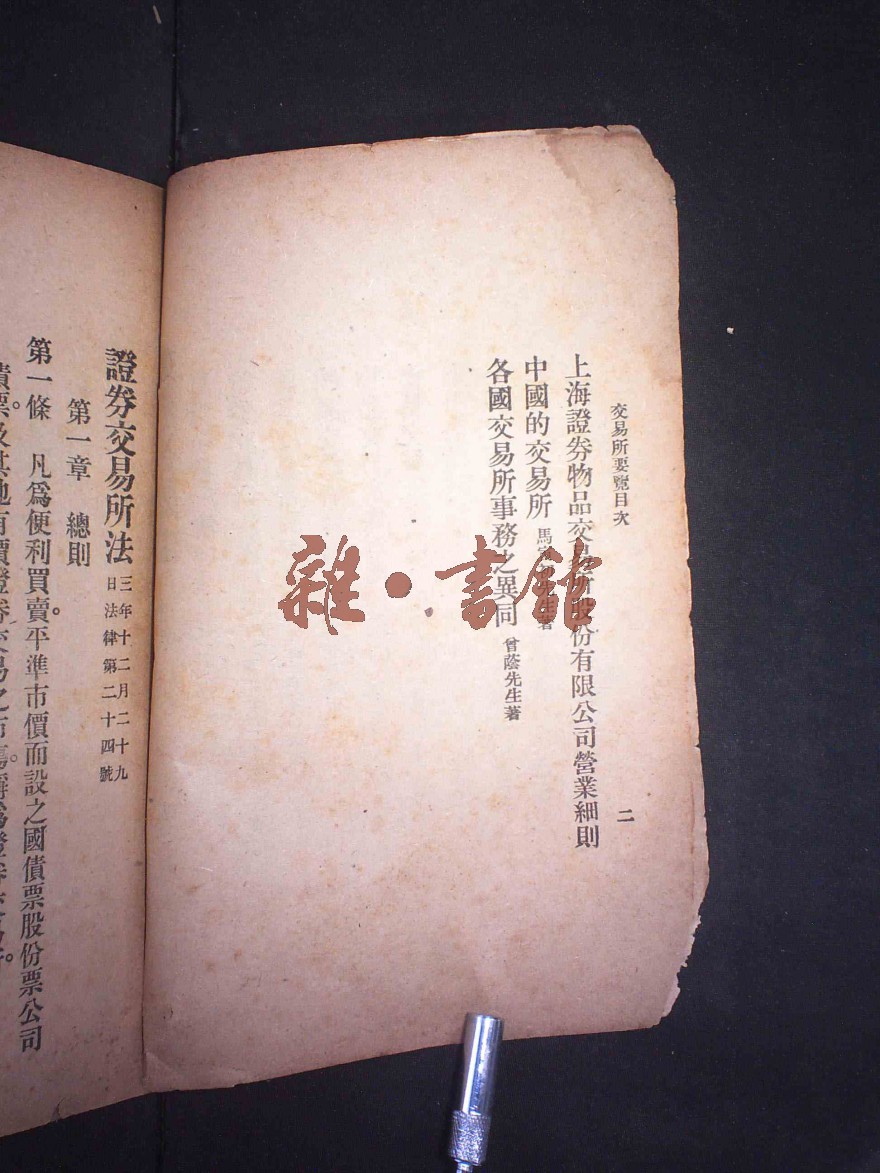 交易所要覽目次
二
上海證券物品交易所股份有限公司營業細則
中國的交易所 馬 先生著
各國交易所事務之異同 曾蔭先生著
證券交易所法 三年十二月二十九日法律第二十四號
第一章 總則
第一條 凡爲便利買賣。平準市價而設之國債票股份票公司
債票。及其他有價證券交易之市場。稱爲證券交易所。
雜·書館